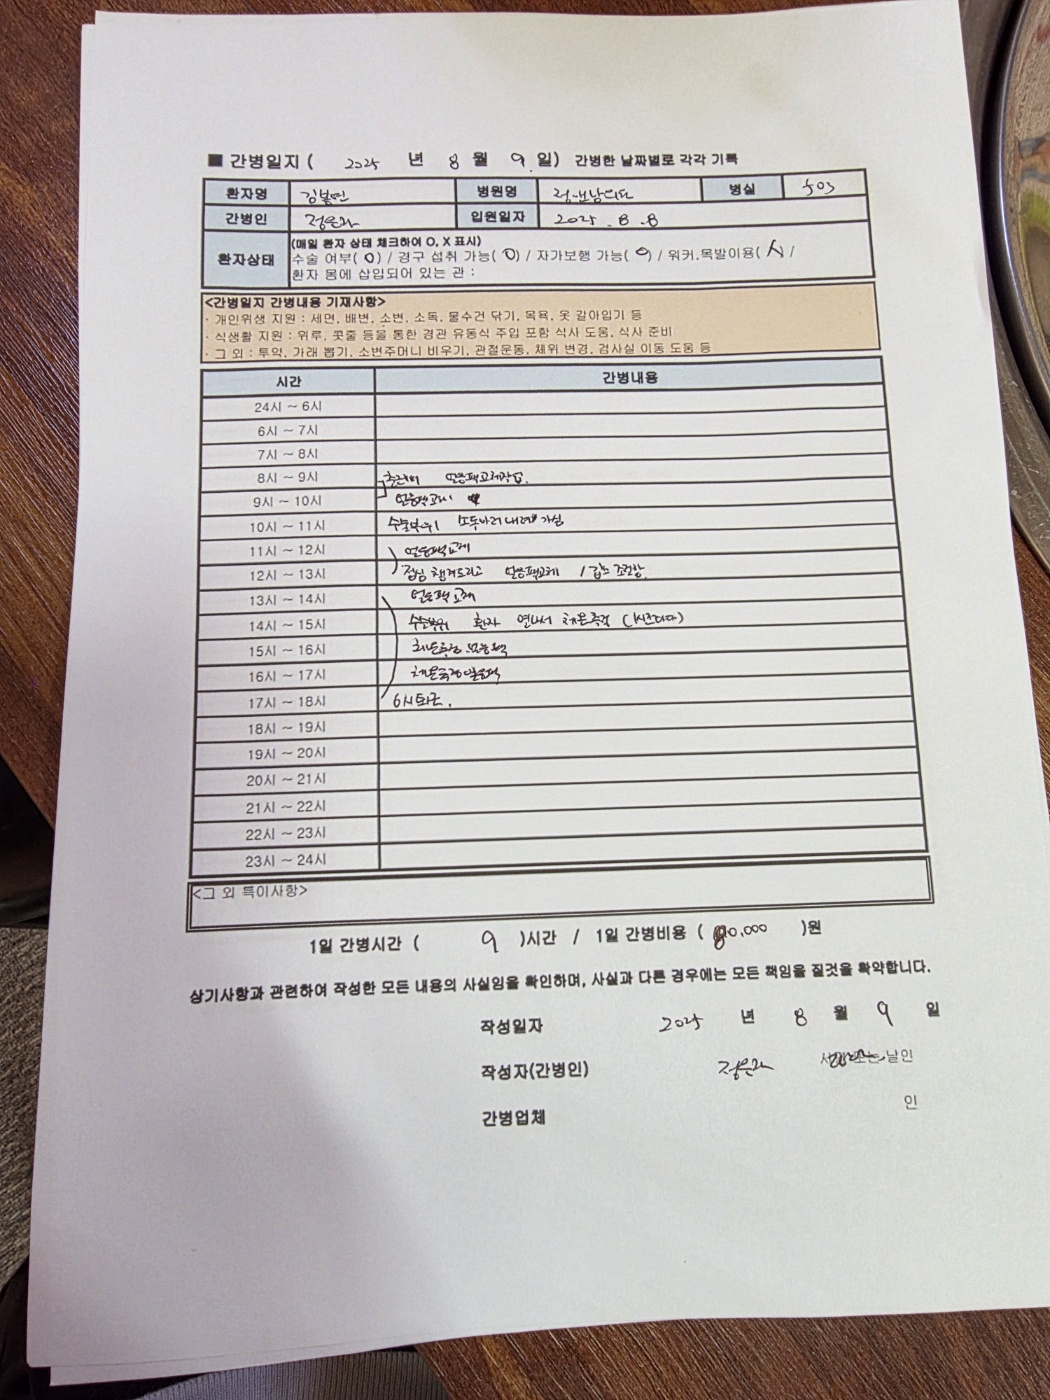 ■ 간병일지 ( 2025 년 8 월 9 일) 간병한 날짜별로 각각 기록
환자명 병원명 병실 503
간병인 정은화 입원일자 2025 . 8 . 8
환자상태 (매일 환자 상태 체크하여 O, X 표시)
수술 여부( O ) / 경구 섭취 가능( O ) / 자가보행 가능( O ) / 워커,목발이용( X ) /
환자 몸에 삽입되어 있는 관 :
<간병일지 간병내용 기재사항>
· 개인위생 지원 : 세면, 배변, 소변, 소독, 물수건 닦기, 목욕, 옷 갈아입기 등
· 식생활 지원 : 위루, 콧줄 등을 통한 경관 유동식 주입 포함 식사 도움, 식사 준비
· 그 외 : 투약, 가래 뽑기, 소변주머니 비우기, 관절운동, 체위 변경, 검사실 이동 도움 등
시간 간병내용
24시 ~ 6시
6시 ~ 7시
7시 ~ 8시
8시 ~ 9시 얼음팩교체
9시 ~ 10시 얼음팩교체
10시 ~ 11시 수술부위
11시 ~ 12시 얼음팩교체
12시 ~ 13시 점심 챙겨드리고 얼음팩교체
13시 ~ 14시 얼음팩 교체
14시 ~ 15시 수술부위 환자 체온측정
15시 ~ 16시 얼음팩
16시 ~ 17시 체온측정 얼음팩
17시 ~ 18시 6시퇴근.
18시 ~ 19시
19시 ~ 20시
20시 ~ 21시
21시 ~ 22시
22시 ~ 23시
23시 ~ 24시
<그 외 특이사항>
1일 간병시간 ( 9 )시간 / 1일 간병비용 ( 80,000 )원
상기사항과 관련하여 작성한 모든 내용의 사실임을 확인하며, 사실과 다른 경우에는 모든 책임을 질것을 확약합니다.
작성일자 2025 년 8 월 9 일
작성자(간병인) 정은화 서명 또는 날인
간병업체 인